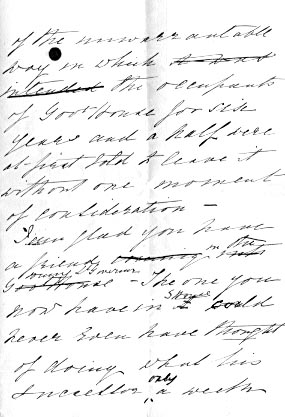 of the unwarrantable
way in which it had
intended the occupants
of Govt House for six
years and a half were
at first told to leave it
without one moment
of consideration –
I am glad you have
a friendly in the
Govt House – The one you
now have in S. House I could
never even have thought
of doing what his
successor, only a week